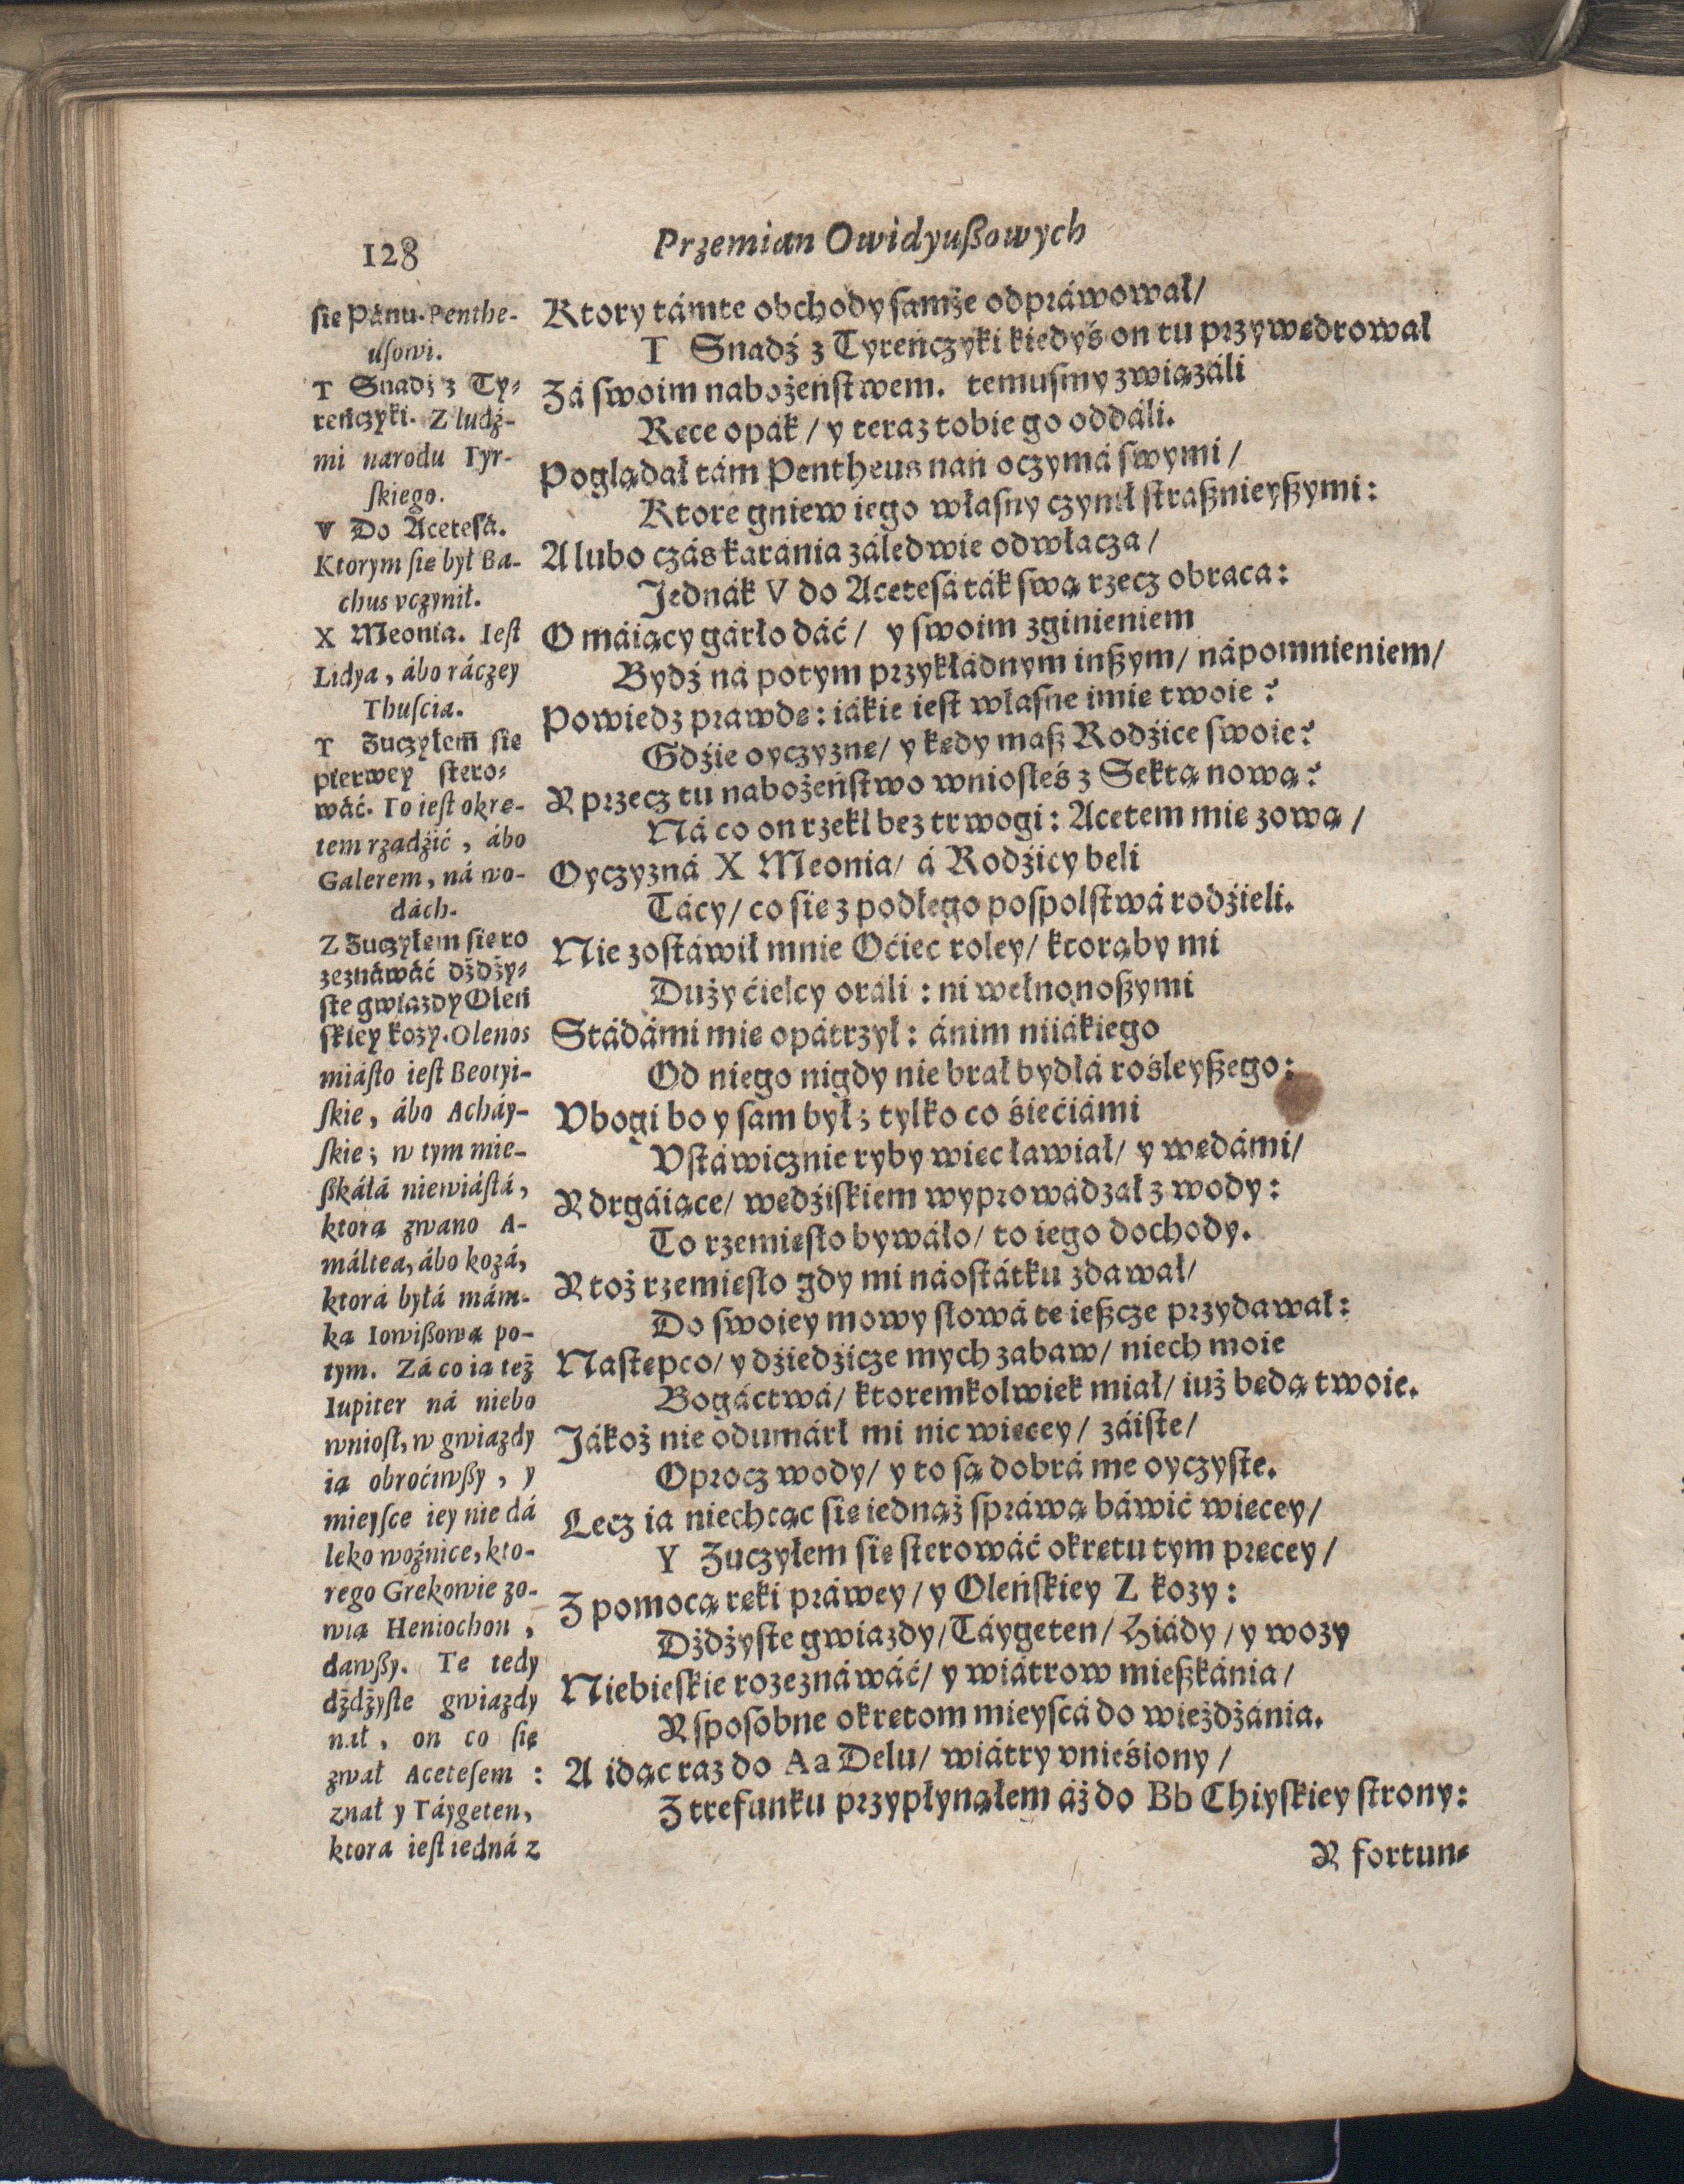 128
Przemian Owidyußowych
ſie Pánu. Pentheuſowi.
T Snadź z Tyreńczyki. Z ludźmi narodu Tyrſkiego.
V Do Acetesá.
Ktorym ſie był Bachus vczynił.
X Meonia. Ieſt
Lidya, ábo ráczey
Thuſcia.
T Zuczyłem ſie
pierwey ſterowáć. To ieſt okretem rządźić, ábo
Galerem, ná wodách.
Z Zuczyłem ſie rozeznáwáć dżdżyſte gwiazdy Oleńſkiey kozy. Olenos
miáſto ieſt Beotyiſkie, ábo Acháyſkie; w tym mießkáłá niewiáſtá,
ktorą zwano Amáltea, ábo kozá,
ktorá byłá mámką Iowißową potym. Zá co ią też
Iupiter ná niebo
wnioſł, w gwiazdy
ią obroćiwßy, y
mieyſce iey nie dáleko woźnice, ktorego Grekowie zowią Heniochon,
dawßy. Te tedy
dżdżyſte gwiazdy
znał, on co się
zwał Aceteſem:
znał y Táygeten,
ktora ieſt iedná z
Ktory támte obchody ſamże odpráwował/
T Snadź z Tyreńczyki kiedyś on tu przywędrował
Zá ſwoim nabożeńſtwem. temuſmy związáli
Ręce opák/ y teraz tobie go oddáli.
Poglądał tám Pentheus nań oczymá ſwymi/
Ktore gniew iego właſny czynił ſtraßnieyßymi:
A lubo czás karánia záledwie odwłacza/
Jednák V do Acetesá ták ſwą rzecz obraca:
O máiący gárło dáć/ y ſwoim zginieniem
Bydź ná potym przykłádnym inßym/ nápomnieniem/
Powiedz prawdę: iákie ieſt właſne imie twoie?
Gdźie oyczyznę/ y kędy maß Rodźice ſwoie?
Y przecz tu nabożeńſtwo wnioſłeś z Sektą nową?
Ná co on rzekł bez trwogi: Acetem mie zową/
Oyczyzná X Meonia/ á Rodźicy beli
Tácy/ co ſie z podłego poſpolſtwá rodźieli.
Nie zoſtáwił mnie Oćiec roley/ ktorąby mi
Duży ćielcy oráli: ni wełnonoßymi
Stádámi mie opátrzył: ánim niiákiego
Od niego nigdy nie brał bydłá rośleyßego:
Vbogi bo y ſam był; tylko co śiećiámi
Vſtáwicznie ryby więc ławiał/ y wędámi/
Y drgáiące/ wędźiſkiem wyprowádzał z wody:
To rzemieſło bywáło/ to iego dochody.
Y toż rzemieſło gdy mi náoſtátku zdawał/
Do ſwoiey mowy ſłowá te ießcze przydawał:
Naſtępco/ y dźiedźicze mych zabaw/ niech moie
Bogáctwá/ ktoremkolwiek miał/ iuż będą twoie.
Jákoż nie odumárł mi nic więcey/ záiſte/
Oprocz wody/ y to są dobrá me oyczyſte.
Lecz ia niechcąc ſie iednąż ſpráwą báwić więcey/
Y Zuczyłem ſie ſterowáć okrętu tym pręcey/
Z pomocą ręki práwey/ y Oleńſkiey Z kozy:
Dżdżyſte gwiazdy/ Táygeten/ Hiády/ y wozy
Niebieſkie rozeznáwáć/ y wiátrow mießkánia/
Y ſpoſobne okrętom mieyſcá do wieżdżánia.
A idąc raz do Aa Delu/ wiátry vnieśiony/
Z trefunku przypłynąłem áż do Bb Chiyſkiey ſtrony:
Y fortun-